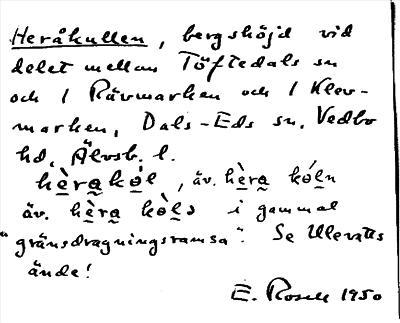 Heråkullen, bergshöjd vid
delet mellan Töftedals sn
och 1 Rävmarken och 1 Klev-
marken, Dals-Eds sn, Vedbo
hd, Älvsb. l.
hè̱ra̱kó̱l, äv. hè̱ra̱ kó̱ln
äv. hè̱ra̱ kò̱ls i gammal
"gränsdragningsramsa". Se Ulevatts
ände!
E. Rosell 1950